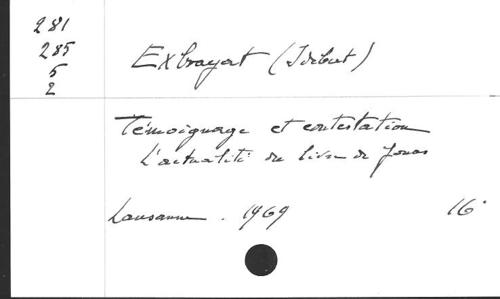 281
285
5
2
Exbrayat (Idebert)
Témoignage et contestation
L'actualité du livre de Jonas
Lausanne. 1969 16°